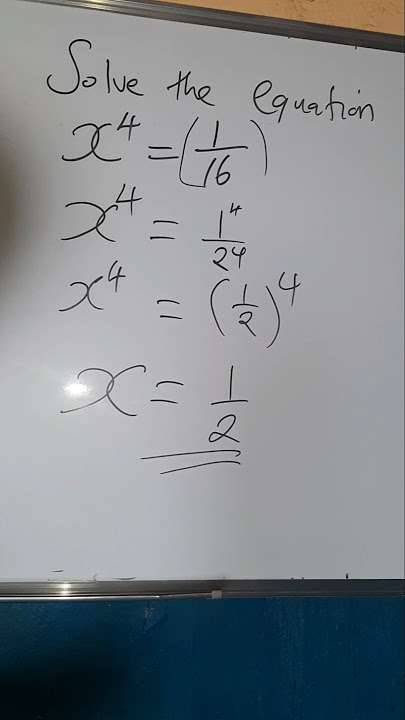 Solve the equation
x⁴ = (1/16)
x⁴ = 1⁴/2⁴
x⁴ = (1/2)⁴
x = 1/2